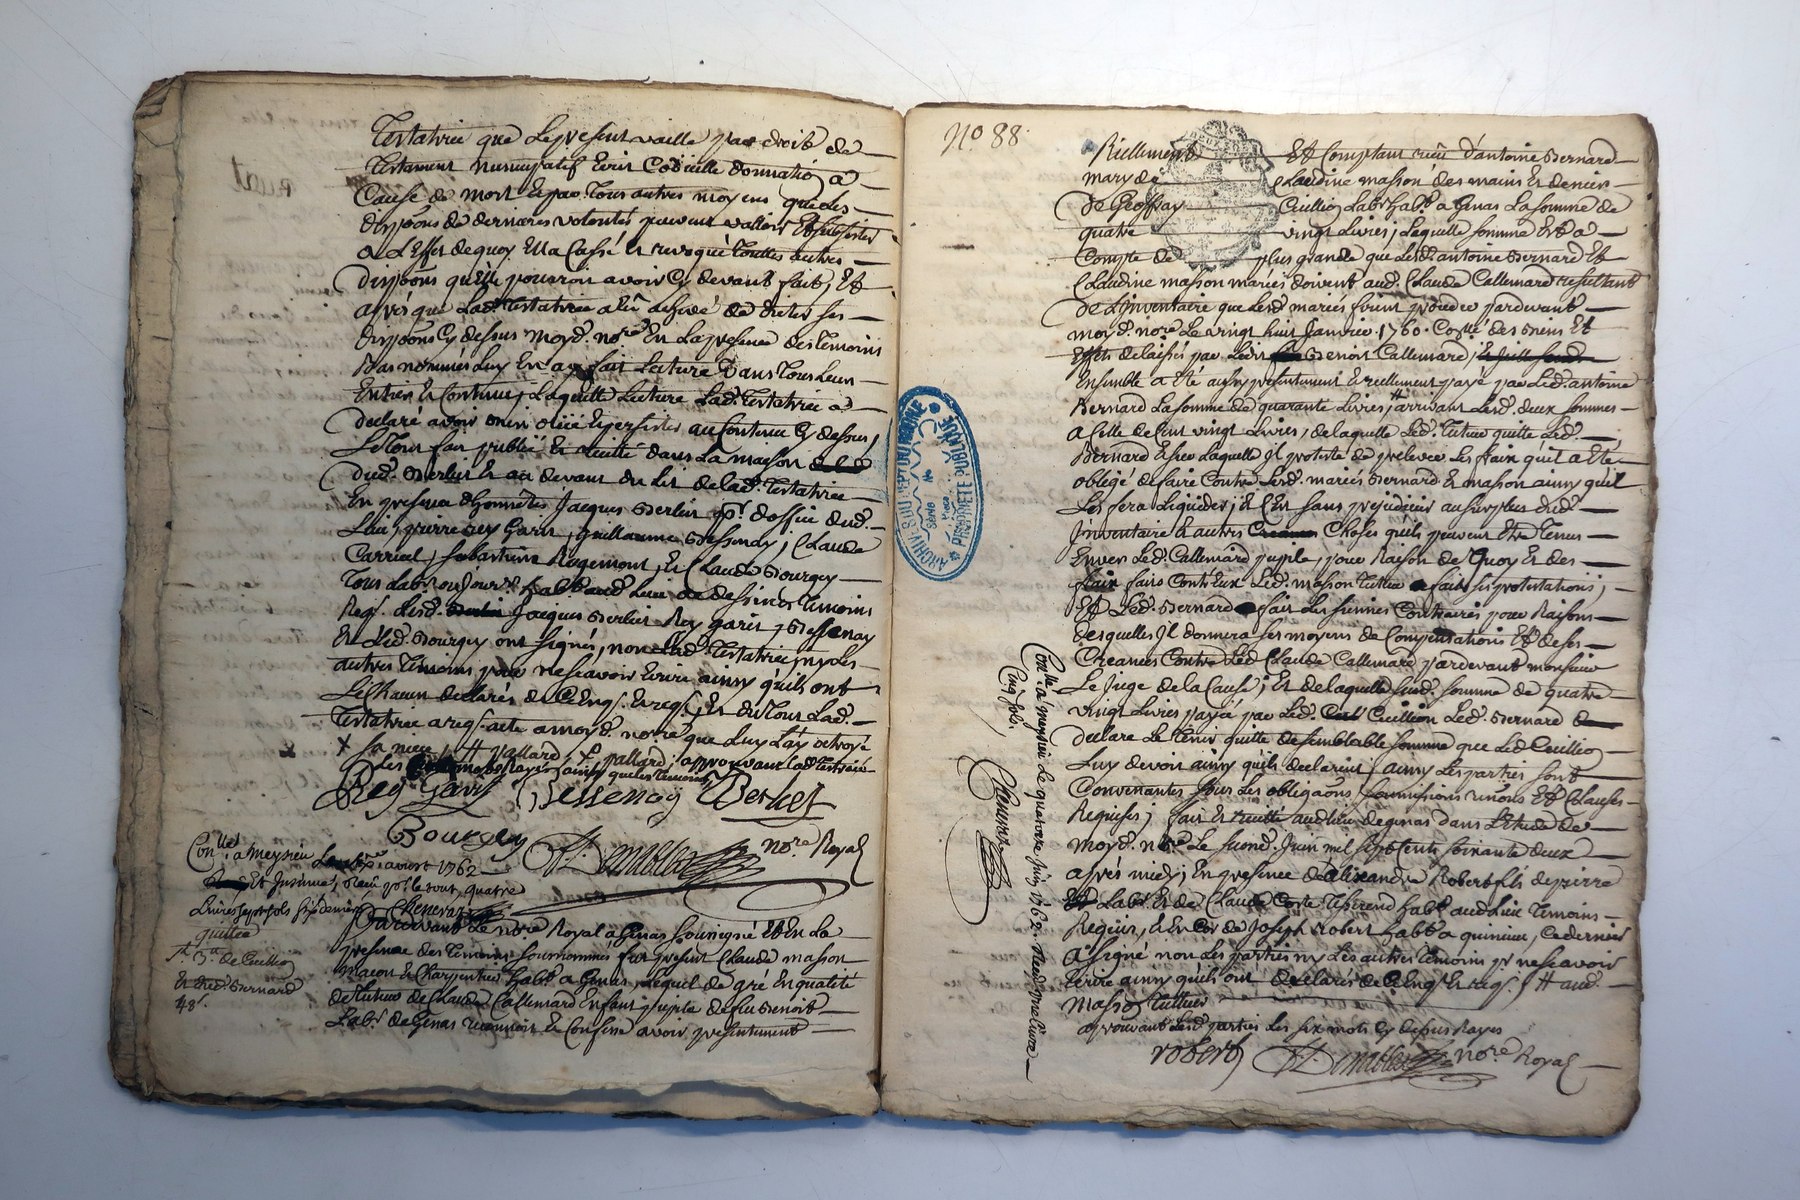 Testatrice que le present vaille par droit de
Testament nuncupatif Ecrit Codicille donnatiõ a
Cause de mort Et par tous autres moyens que les
dispõons de dernieres volontés peuvent valloir Et subsister
a L'Effet de quoy Ella Cassé et revoqué touttes autres
dispõons qu'Elle pourroit avoir Cy devant fait, Et
aprés que Lad. Testatrice a Eû achevé de dicter ses
dispõons Cy dessus moyd. nore En La presence des temoins
Bas nommés Luy En ay fait Lecture dans tous leur
Entier Et Contenu, Laquelle Lecture Lad. Testatrice a
declaré avoir bien oüie Et persister au Contenu Cy dessus,
Le tout fait publié Et recitté dans La maison
dud. Berlier Et au devant du Lit de lad. Testatrice
En presence d'honnettes Jacques Berlier dud.
Lieu, pierre Rey Garit, Guillaume Bessenay, Claude
Carrial, Sebastien Rogemont, Et Claude Bourgey
tous Lab. ou Jour. habt aud. Lieu de temoins
Reqs. Lesd. Jacques Berlier Rey garit, Bessenay
Et Led. Bourgey ont signés, non Lad. Testatrice, ny Les
autres temoins pour ne scavoir Ecrire ainsy qu'ils ont
declarés de Ce Enq. Et reqs., Et du tout Lad.
Testatrice a reqs. acte a moyd. nore que Luy L'ay octroyé
X sa niece, H pallard, pallard, approuvant lad. Testatrice
Les mots Rayés ainsy que les temoins
Rey Garit Bessenay Berlier
Bourgey nore Royal
Conllé a Meysieu Le aoust 1762
Et Insinué, Recu pr le tout quatre
Livres sept sols six deniers Chenevaz
Pardevant Le nore Royal a Genas soussigné Et En La
presence des temoins sousnommés fut present Claude masson
macon Et Charpentier habt a Genas, Lequel de gré En qualité
de tuteur de Claude Callemard Enfant pupile de feu Benoit
Labr de Genas reconnoit Et Confesse avoir presentement
quittce
de Cuillion
Et Bernard
48s.
No 88.
Rëellement Et Comptant reçu d'antoine Bernard
mary de Claudine masson des mains Et deniers
de Geoffray Cuillion Labr habt a Genas La somme de
quatre vingt Livres, Laquelle somme Est a
Compte de plus grande que Lesd. antoine Bernard Et
Claudine masson mariés doivent aud. Claude Callemard resultant
de L'inventaire que Lesd. mariés firent proceder pardevant
moyd. nore Le vingt huit Janvier 1760. Conllé des biens Et
Effets delaissés par Led. Benoit Callemard,
Ensemble a Eté aussy presentement Et reellement payé par Led. antoine
Bernard La somme de quarante Livres, arrivant Lesd. deux sommes
a Celle de Cent vingt Livres, de laquelle Led. tuteur quitte Led.
Bernard Avec Laquelle Jl protesté de prelever Les frais qu'il a Eté
obligé de faire Contre Lesd. mariés Bernard Et masson ainsy qu'il
Les fera Liquider, Et C'est sans prejudicier au surplus dud.
Jnventaire Et autres Choses qu'ils peuvent Etre tenus
Envers Led. Callemard pupile, pour Raison de Quoy Et des
frais faits Contr'Eux Led. masson tuteur fait ses protestations,
Et Led. Bernard fait Les siennes Contraires pour Raisons
desquelles Jl donnera ses moyens de Compensations Et de ses
Creances Contre Led. Claude Callemard pardevant monsieur
Le Juge de la Cause, Et de laquelle susd. somme de quatre
vingt Livres payée par Led. Cuillion Led. Bernard
declare Le tenir quitte de semblable somme que Led. Cuillion
Luy devoit ainsy qu'ils declarent, ainsy Les parties sont
Convenantes sous Les obligaõns soumissions renõns Et Clauses
Requises, fait Et recitté aud. Lieu de genas dans L'Etude de
moyd. nore Le second Juin mil sept Cents soixante deux
aprés midy, En presence d'alexandre Robert fils de pierre
Labr Et de Claude Coste tisserand habt aud. Lieu temoins
Requis, Et En Cor de Joseph Robert habt a quincieu, Ce dernier
a signé non Les parties ny Les autres temoins pr ne scavoir
Ecrire ainsy qu'ils ont declarés de Ce Enq. Et reqs. H aud.
Masson tutteur
aprouvant Lesd. parties Les six mots Cy dessus Rayés
robert nore Royal
Conllé a meysieu Le quatorze juin 1762. Recu une Livre
Cinq sols.
Chenevaz
PROPRIETE PUBLIQUE
ARCHIVES DU DEPT DU RHONE